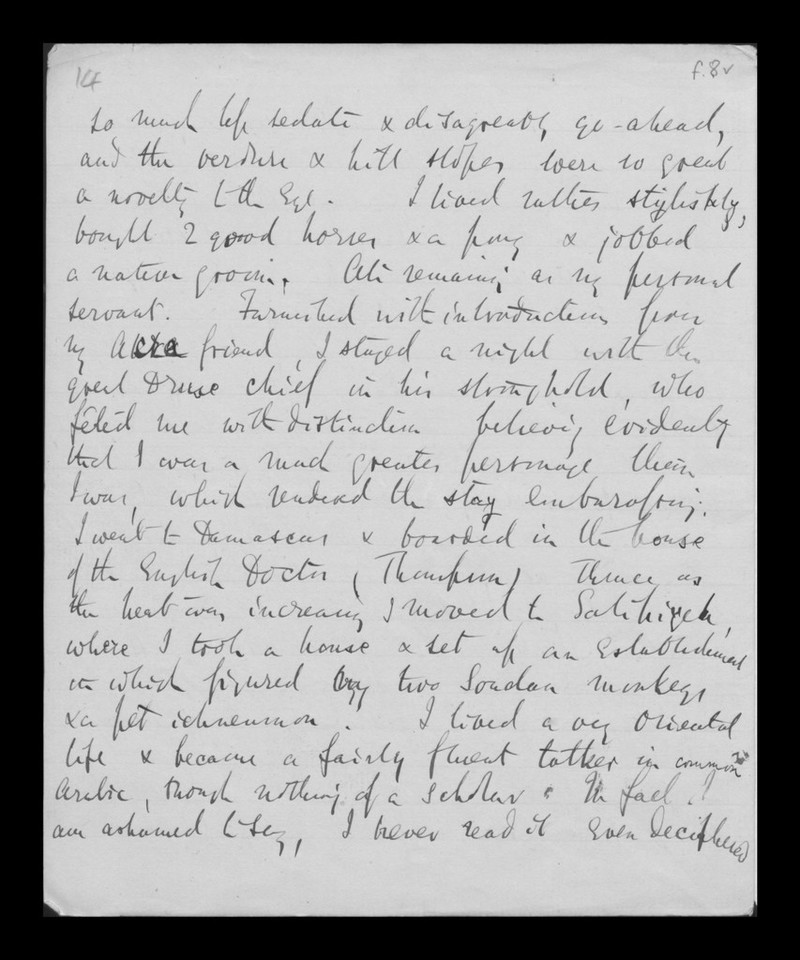 14
f.8v
so much less sedate & disagreeably go-ahead,
and the verdure & hill slopes were so great
a novelty to the Eye. I lived rather stylishly,
bought 2 good horses & a pony & jobbed
a native groom, Ali remaining as my personal
servant. Furnished with introductions from
my Acre friend, I stayed a night with the
great Druse chief in his stronghold, who
fêted me with distinction believing evidently
that I was a much greater personage than
I was, which rendered the stay embarassing.
I went to Damascus & boarded in the house
of the English Doctor (Thompson) Thence as
the heat was increasing I moved to Salihiyeh,
where I took a house & set up an Establishment
in which figured my two Soudan monkeys
& a pet ichneumon. I lived a very Oriental
life & became a fairly fluent talker in common
Arabic, though nothing of a scholar. In fact I
am ashamed to say, I never read it Even deciphered